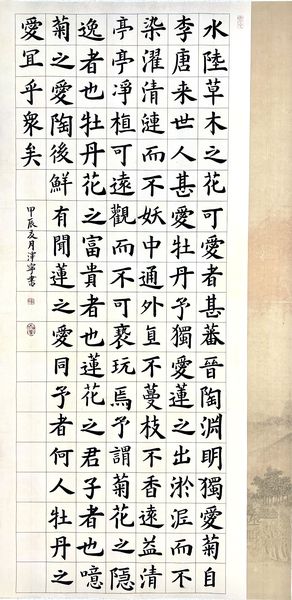 水陸草木之花可愛者甚蕃晉陶淵明獨愛菊自
李唐来世人甚愛牡丹予獨愛蓮之出淤泥而不
染濯清漣而不妖中通外直不蔓枝不香遠益清
亭亭淨植可遠觀而不可褻玩焉予謂菊花之隱
逸者也牡丹花之富貴者也蓮花之君子者也噫
菊之愛陶後鮮有聞蓮之愛同予者何人牡丹之
愛冝乎衆矣
甲辰夏月寧書